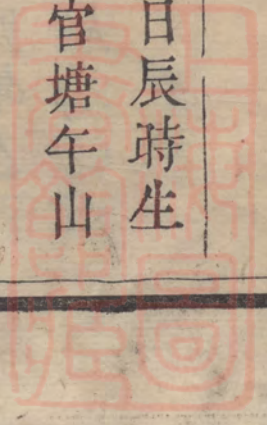 日辰時生
官塘午山